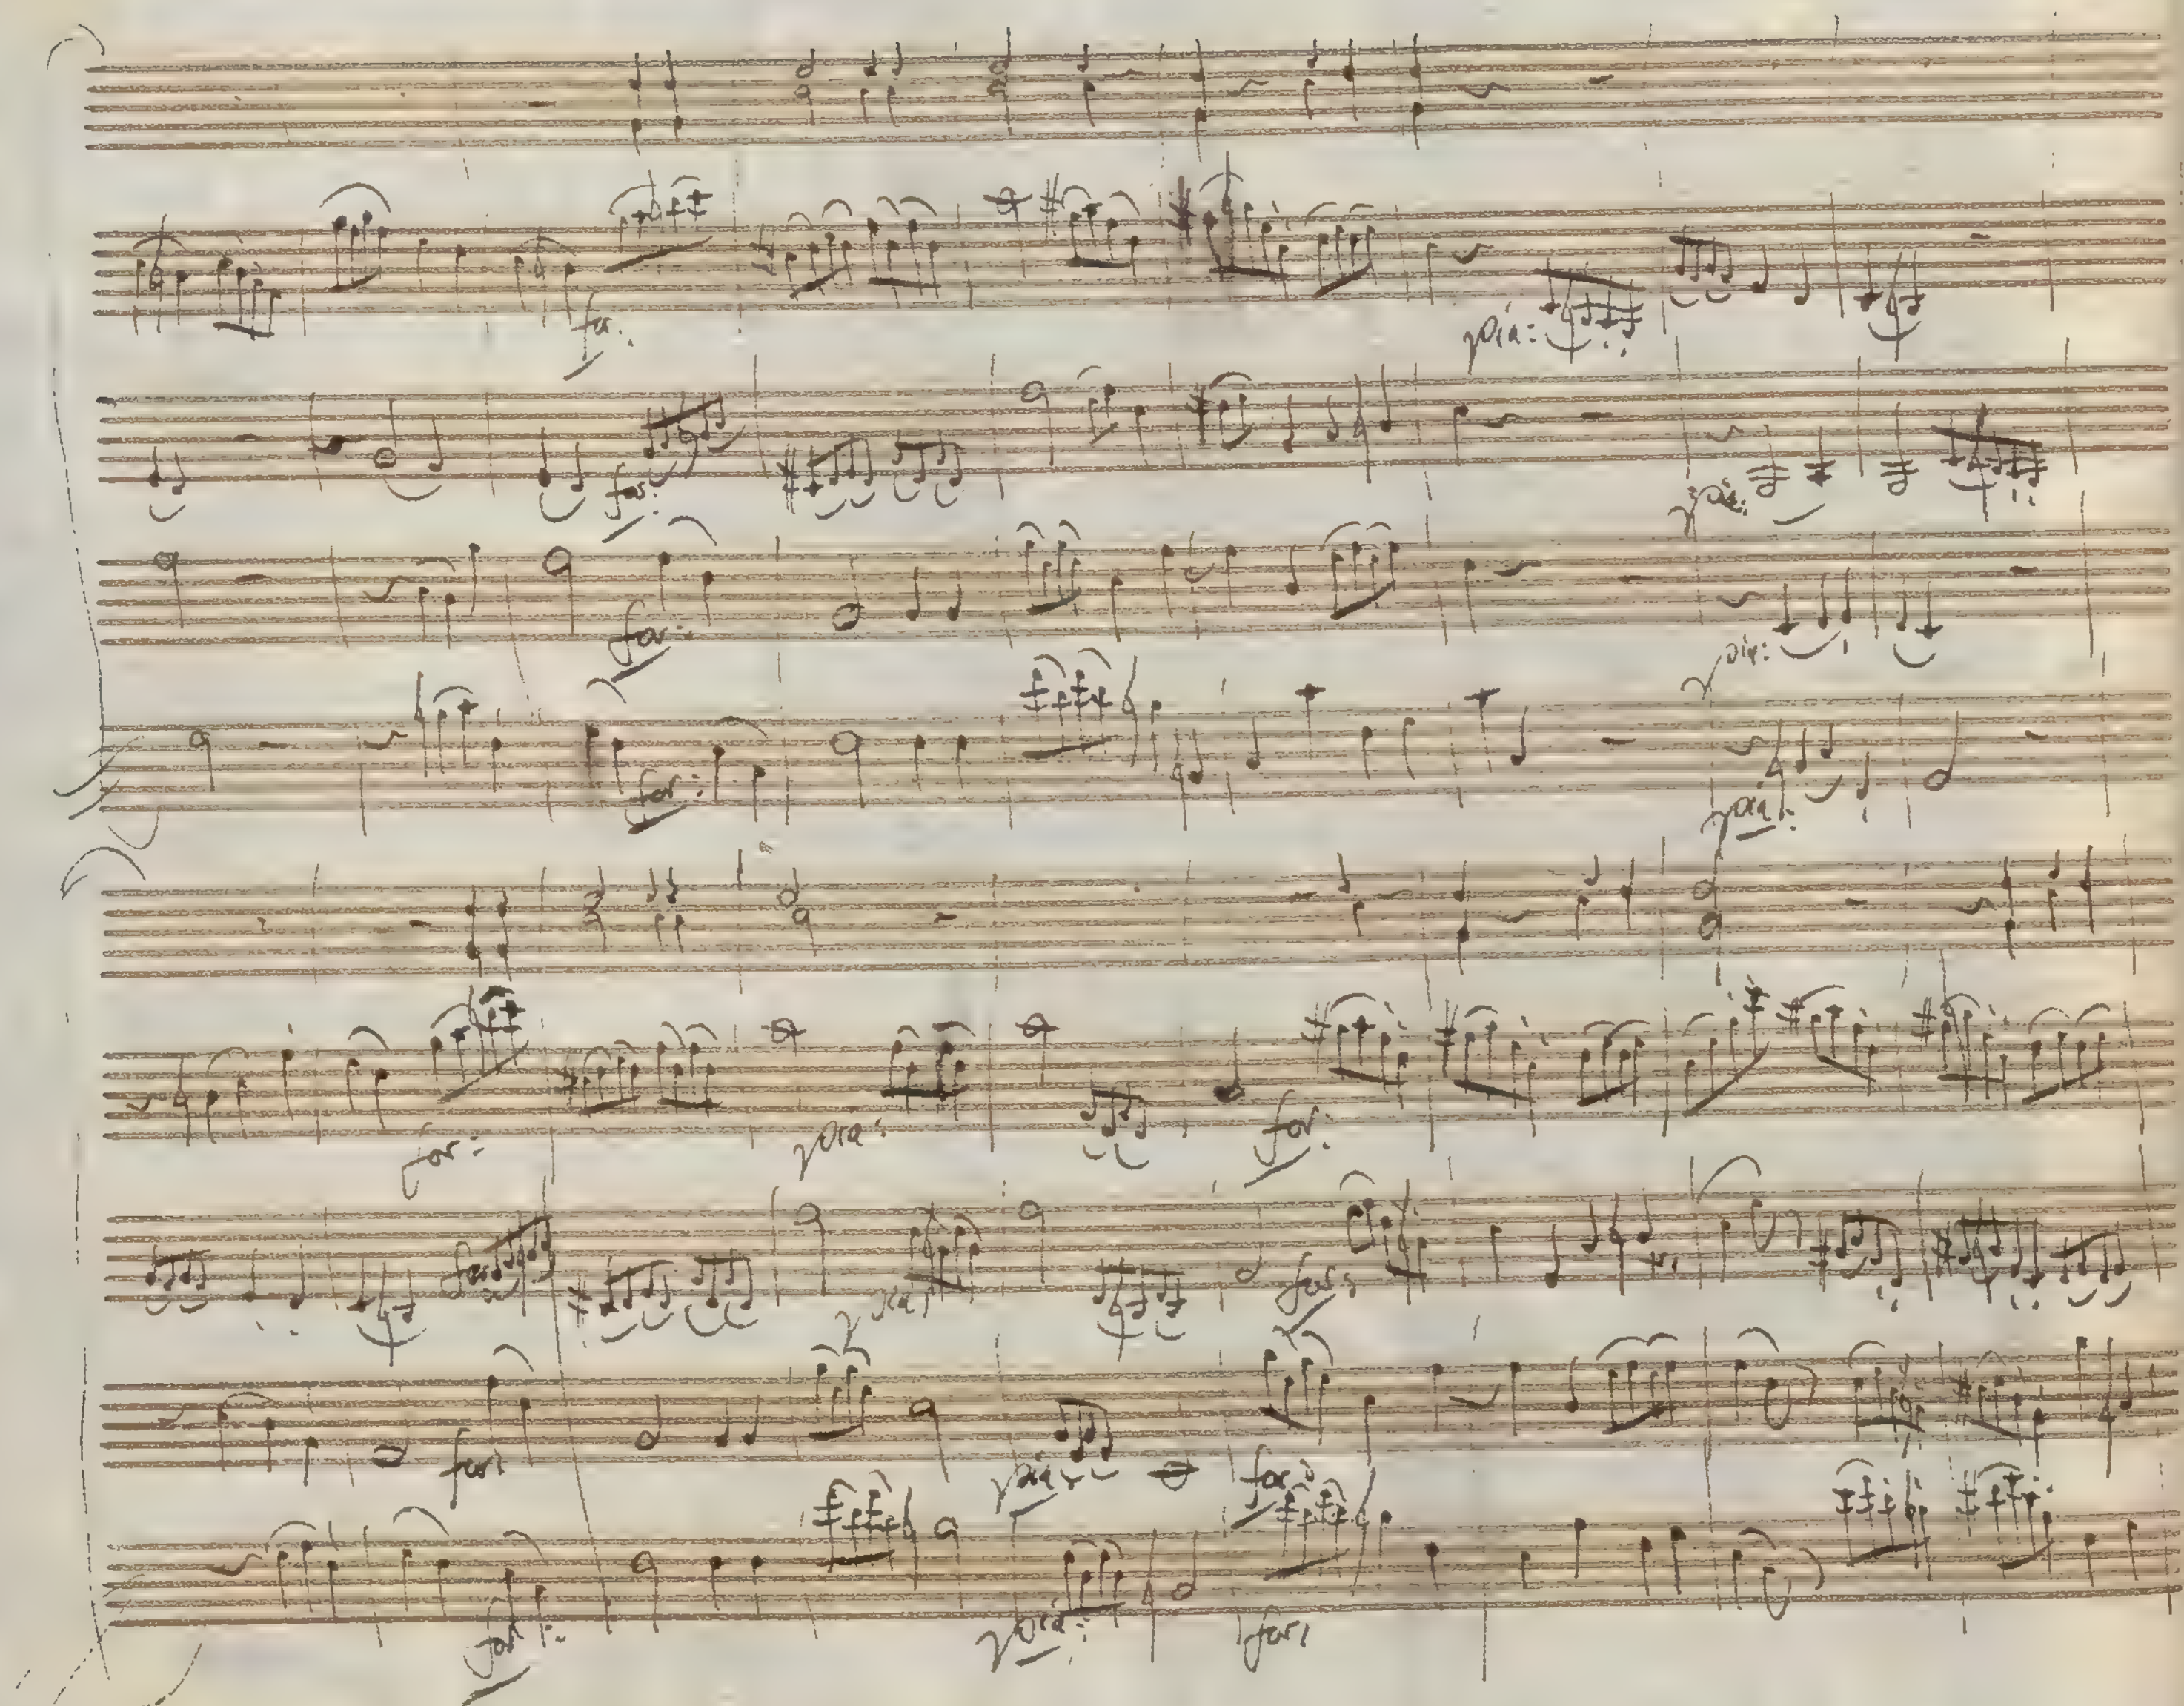 for:
pia:
for:
pia:
for:
pia:
for:
pia:
for:
pia:
for:
for:
pia:
for:
for:
pia:
for:
pia:
for:
for:
pia:
for: